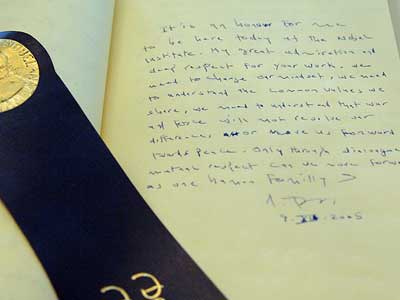 It is an honour for me
to be here today at the Nobel
Institute. My great admiration and
deep respect for your work. We
need to change our mindset, we need
to understand the common values we
share, we need to understand that war
and force will not resolve our
differences or move us forward
towards peace. Only through dialogue
mutual respect can we move forward
as one human family
9. XII. 2005